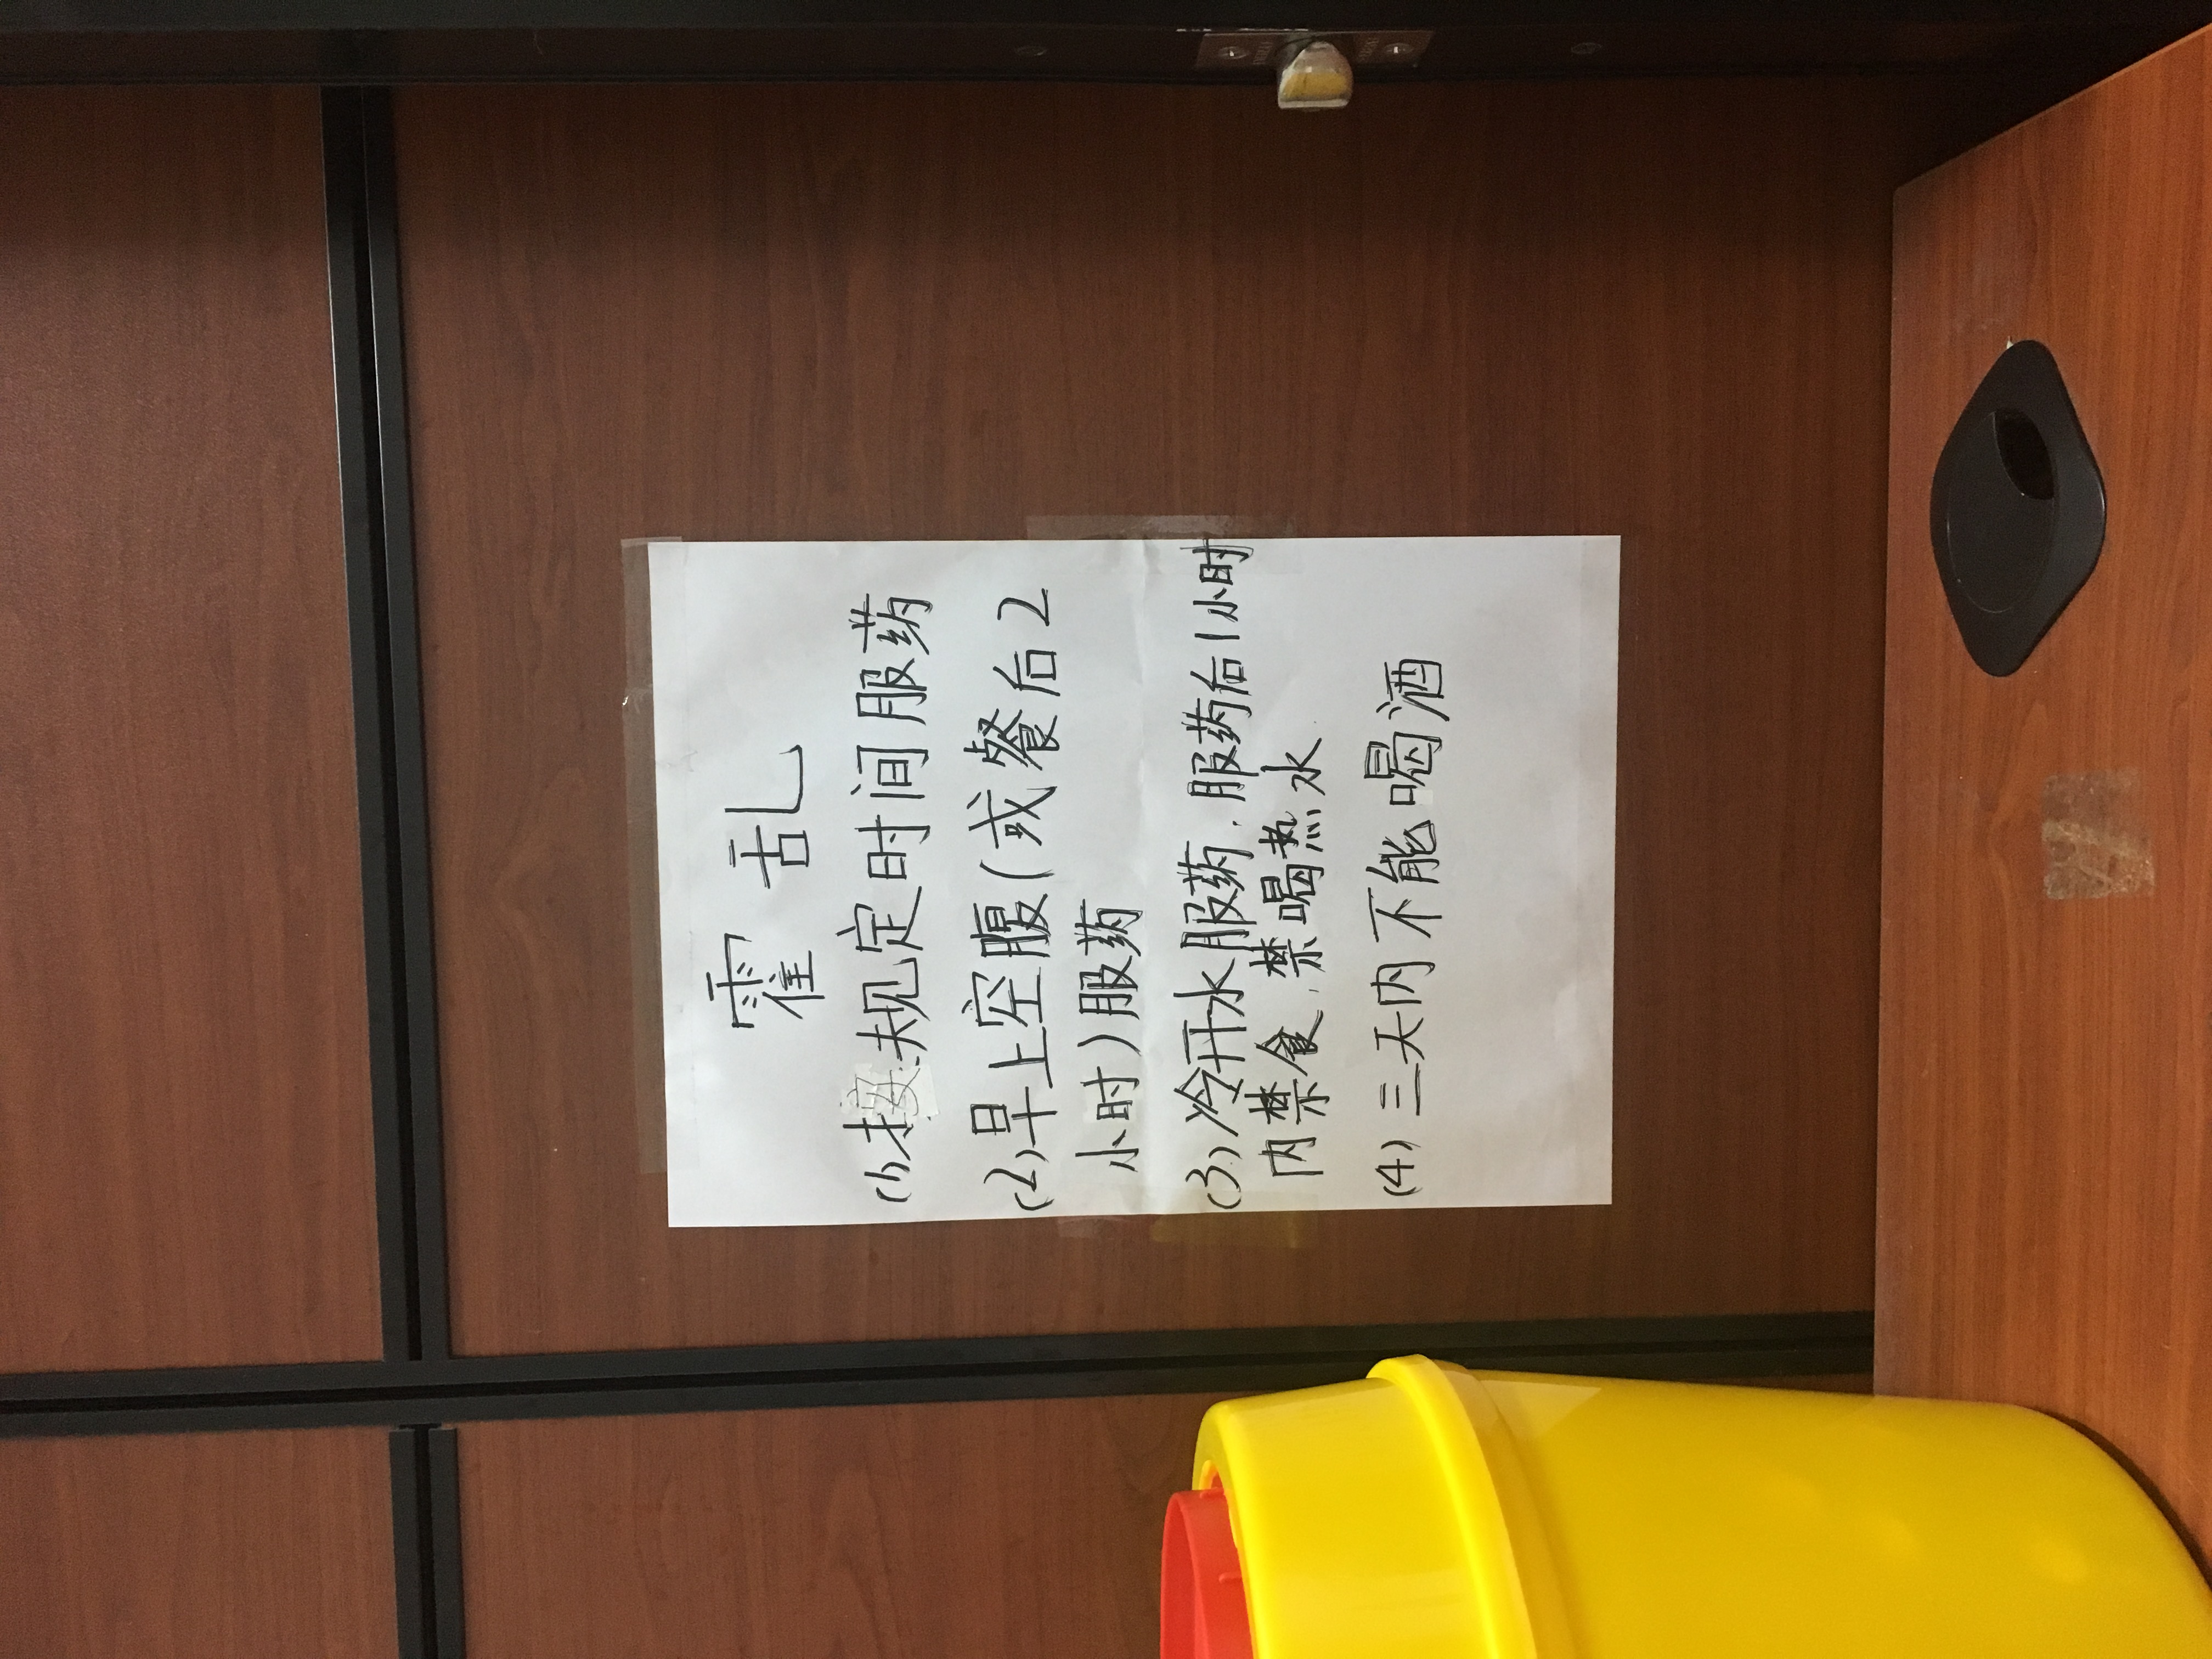 霍乱
(1)按规定时间服药
(2)早上空腹(或餐后2
小时)服药
(3)冷开水服药.服药后1小时
内禁食.禁喝热水
(4)三天内不能喝酒